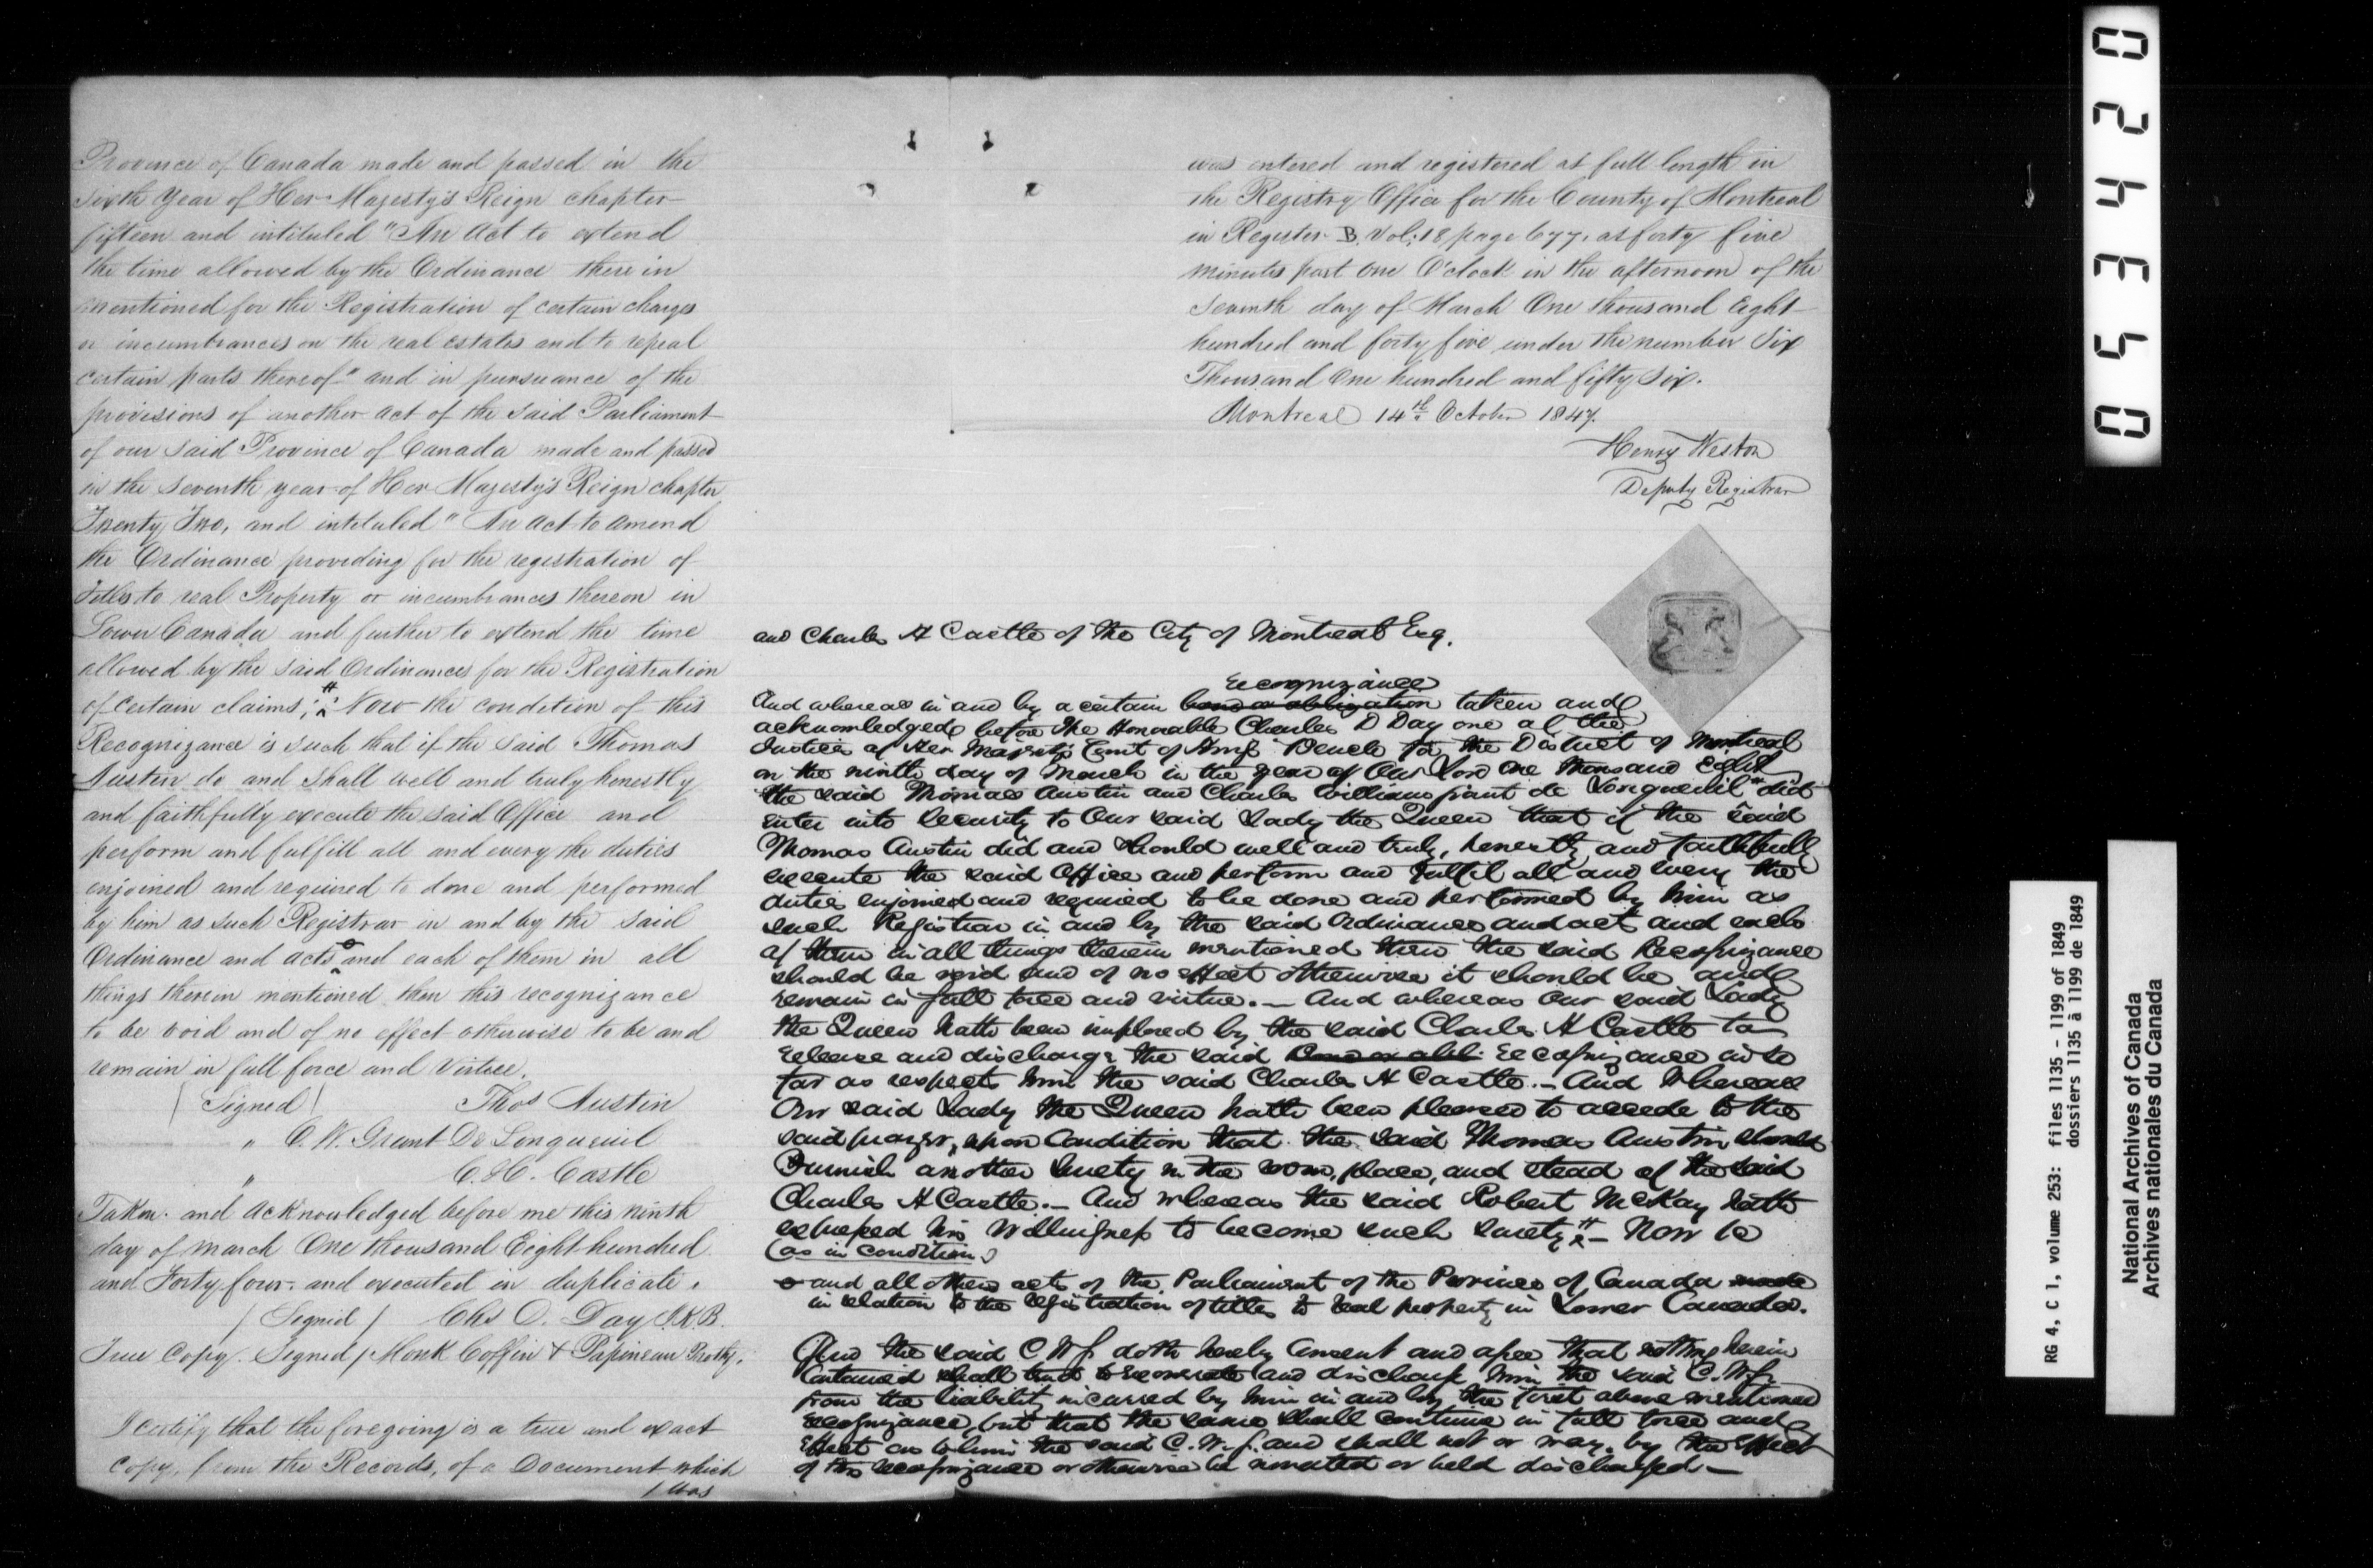 Province of Canada made and passed in the
Sixth Year of Her Majesty's Reign chapter
fifteen and intituled "An Act to extend
the time allowed by the Ordinance there in
mentioned for the Registration of certain charges
or incumbrances on the real estates and to repeal
certain parts thereof" and in pursuance of the
provisions of another Act of the said Parliament
of our said Province of Canada made and passed
in the Seventh year of Her Majesty's Reign chapter
Twenty Two, and intituled "An Act to amend
the Ordinance providing for the registration of
titles to real Property or incumbrances thereon in
Lower Canada and further to extend the time
allowed by the said Ordinances for the Registration
of certain claims; # Now the condition of this
Recognizance is such that if the said Thomas
Austin do and shall well and truly honestly
and faithfully execute the said Office and
perform and fulfill all and every the duties
enjoined and required to done and performed
by him as such Registrar in and by the said
Ordinance and acts and each of them in all
things therein mentioned then this recognizance
to be void and of no effect otherwise to be and
remain in full force and Virtue.
(Signed) Thos Austin
" C. W. Grant De Longueuil
" C. H. Castle
Taken and acknowledged before me this ninth
day of March One thousand Eight hundred
and Forty four and executed in duplicate.
/Signed/ Chs D. Day J.K.B.
True Copy. Signed / Monk Coffin & Papineau Prothy.
I certify that the foregoing is a true and exact
Copy, from the Records, of a Document which
/ was
was entered and registered at full length in
the Registry Office for the County of Montreal
in Register B. Vol: 18 page 677. at forty five
minutes past One O'clock in the afternoon of the
Seventh day of March One thousand Eight
hundred and forty five under the number Six
Thousand One hundred and fifty Six.
Montreal 14th October 1847.
Henry Weston
Deputy Registrar
and Charles H Castle of the City of Montreal Esq.
recognizance
And whereas in and by a certain bond or obligation taken and
acknowledged before the Honorable Charles D Day one of the
Justices of Her Majesty's Court of King's Bench for the District of Montreal
on the ninth day of March in the year of Our Lord One thousand Eight
the said Thomas Austin and Charles William Grant de Longueuil did
enter into security to Our said Lady the Queen that if the said
Thomas Austin did and should well and truly, honestly and faithfully
execute the said Office and perform and fulfil all and every the
duties enjoined and required to be done and performed by him as
such Registrar in and by the said Ordinances and act and each
of them in all things therein mentioned then the said Recognizance
should be void and of no effect otherwise it should be and
remain in full force and virtue.— And whereas Our said Lady
the Queen hath been implored by the said Charles H Castle to
release and discharge the said Bond or obl. recognizance in so
far as respects him the said Charles H Castle.— And Whereas
Our said Lady the Queen hath been pleased to accede to the
said prayer, upon Condition that the said Thomas Austin should
Furnish another surety in the room, place, and stead of the said
Charles H Castle.— And whereas the said Robert McKay hath
expressed his willingness to become such surety # — Now &c
(as in condition)
and all other acts of the Parliament of the Province of Canada made
in relation to the registration of titles to real property in Lower Canada.
And the said C W G doth hereby consent and agree that nothing herein
Contained shall tend to exonerate and discharge him the said C. W. G.
from the liability incurred by him in and by the first above mentioned
recognizance, but that the same shall continue in full force and
effect as to him the said C. W. G. and shall not or may by the effect
of this recognizance or otherwise be novated or held discharged —
054320
RG 4, C 1, volume 253: files 1135 - 1199 of 1849
dossiers 1135 à 1199 de 1849
National Archives of Canada
Archives nationales du Canada